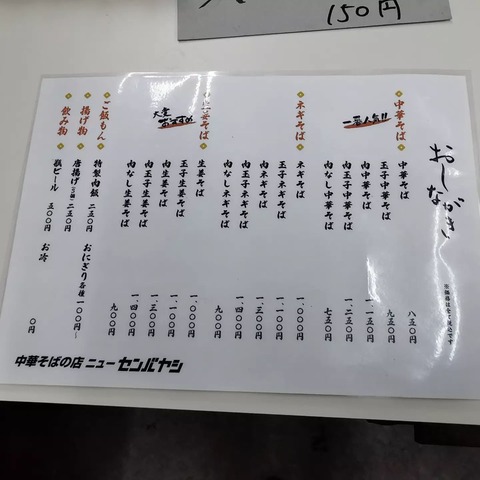 150円
おしながき
※価格は全て税込です
中華そば
一番人気!!
中華そば 八五〇円
玉子中華そば 九五〇円
肉中華そば 一、一五〇円
肉玉子中華そば 一、二五〇円
肉なし中華そば 七五〇円
ネギそば
ネギそば 一、〇〇〇円
玉子ネギそば 一、一〇〇円
肉ネギそば 一、三〇〇円
肉玉子ネギそば 一、四〇〇円
肉なしネギそば 九〇〇円
生姜そば
大定おすすめ
生姜そば 一、〇〇〇円
玉子生姜そば 一、一〇〇円
肉生姜そば 一、三〇〇円
肉玉子生姜そば 一、四〇〇円
肉なし生姜そば 九〇〇円
ご飯もん
特製肉飯 二五〇円 おにぎり各種 一〇〇円〜
揚げ物
唐揚げ 二五〇円
飲み物
瓶ビール 五〇〇円 お冷 〇円
中華そばの店 ニューセンバヤシ